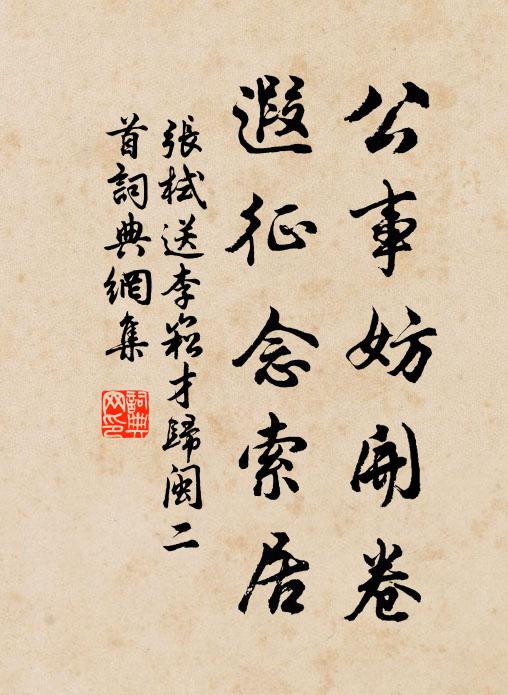 公事妨開卷
遐征念索居
張栻送李崧才歸閩二
首詞典網集
詞典
網印